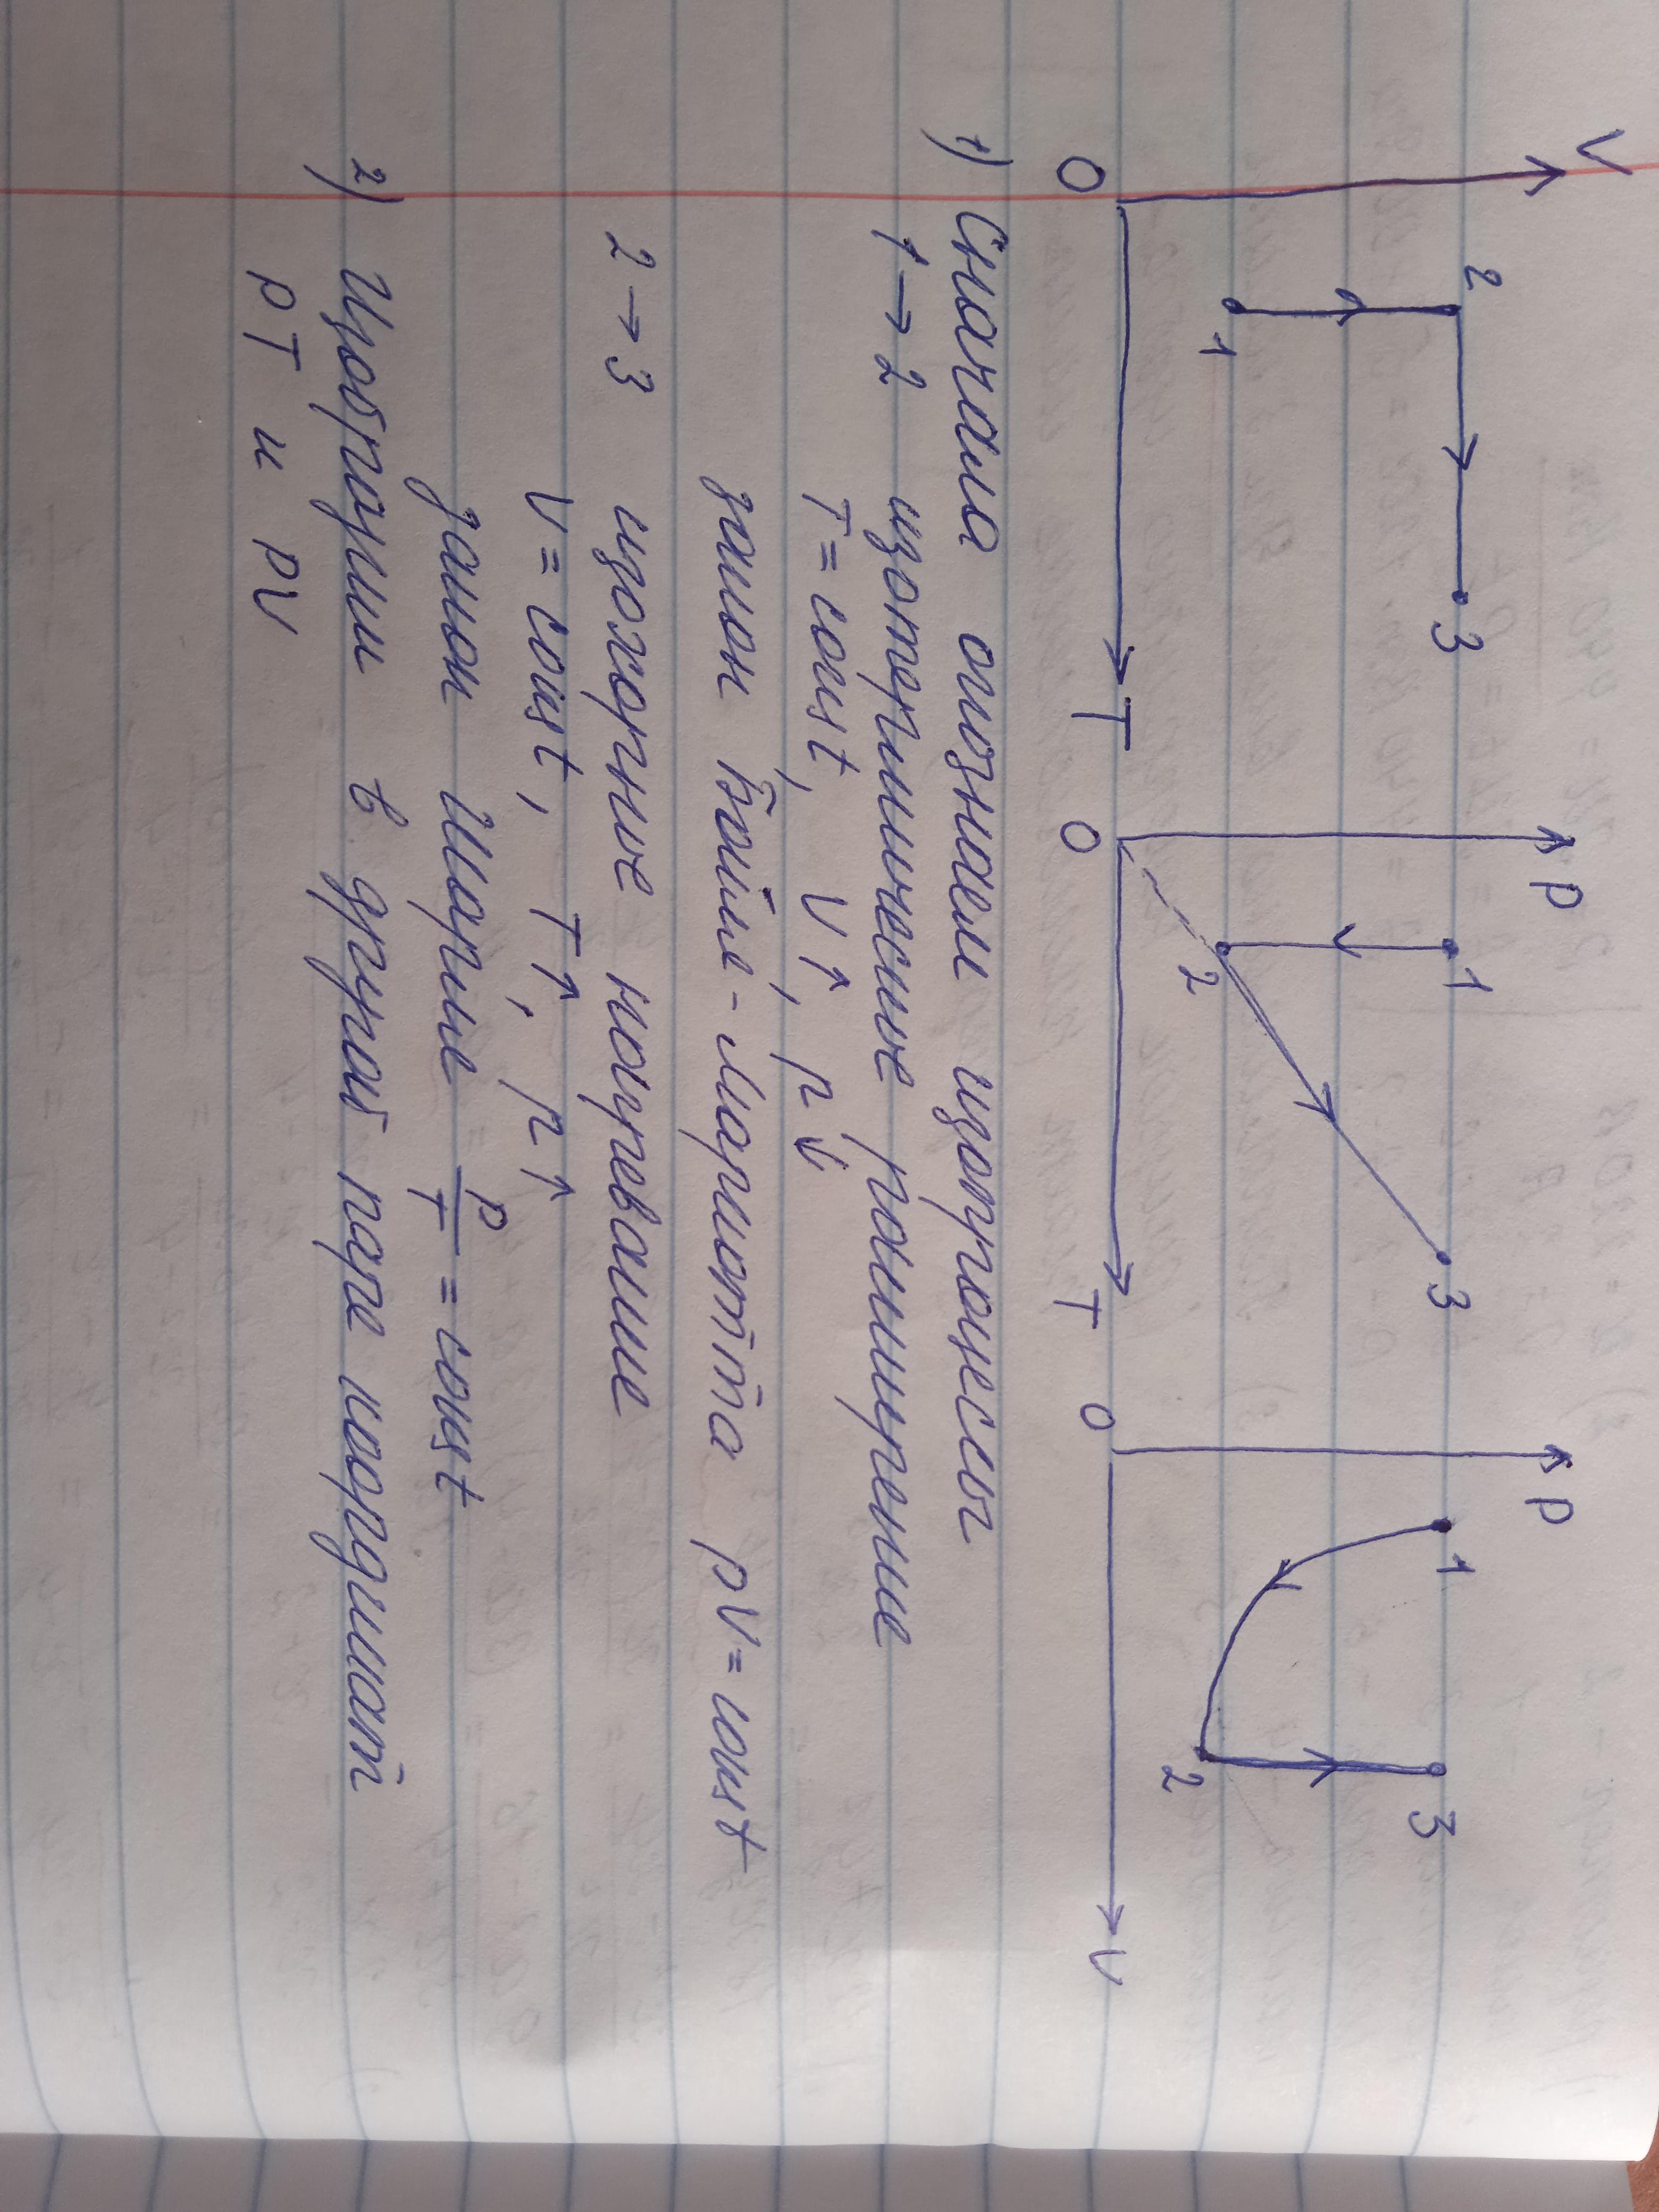 V 2 3 1 0 T
p 1 3 2 0 T
p 1 3 2 0 V
1) Сначала опознаем изопроцессы
1 → 2 изотермическое расширение
T = const, V↑, p↓
закон Бойля - Мариотта pV = const
2 → 3 изохорное нагревание
V = const, T↑, p↑
закон Шарля p/T = const
2) Изобразим в другой паре координат
pT и pV